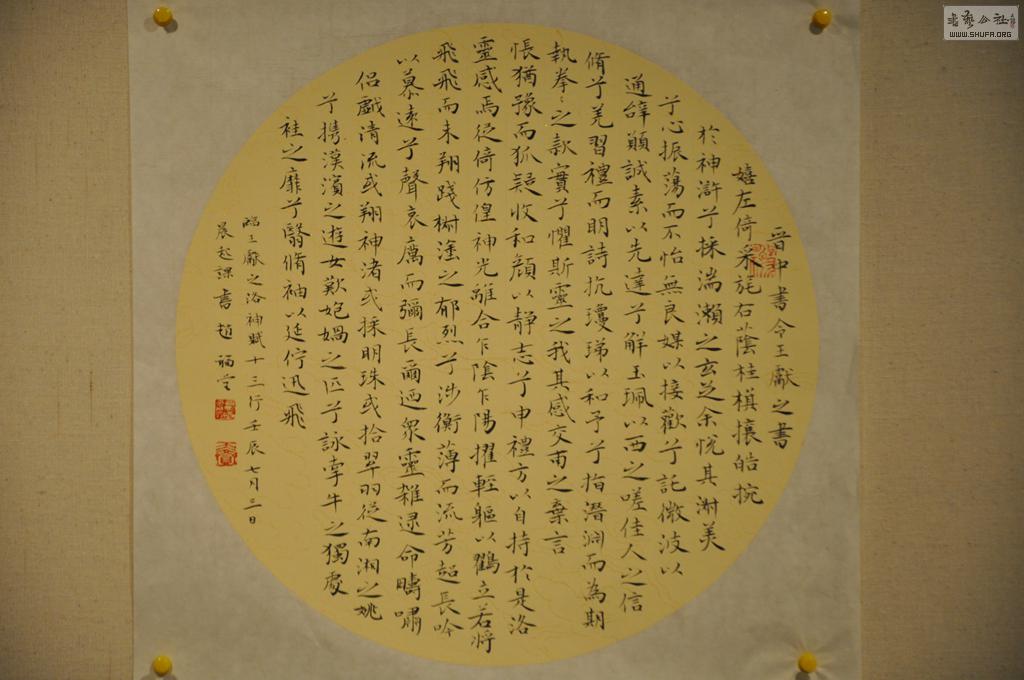 晉中書令王獻之書
嬉左倚采旄右蔭桂棋攘皓捥
於神滸兮採湍瀨之玄芝余悅其淑美
兮心振蕩而不怡無良媒以接歡兮託微波以
通辭願誠素以先達兮解玉珮以西之嗟佳人之信
脩兮羌習禮而明詩抗瓊珶以和予兮指潛淵而為期
執拳々之款實兮懼斯靈之我其感交甫之棄言
悵猶豫而狐疑收和顏以靜志兮申禮方以自持於是洛
靈感焉徙倚仿偟神光離合乍陰乍陽擢輕軀以鶴立若將
飛飛而未翔踐椒塗之郁烈兮涉衡薄而流芳超長吟
以慕遠兮聲哀厲而彌長爾迺眾靈雜遝命疇嘯
侶戲清流或翔神渚或採明珠或拾翠羽從南湘之姚
兮攜漢濱之遊女歎妑媧之匹兮詠牽牛之獨處
袿之靡兮翳脩袖以延佇迅飛
臨王獻之洛神賦十三行壬辰七月三日
晨起課書趙福堂
書藝公社
WWW.SHUFA.ORG